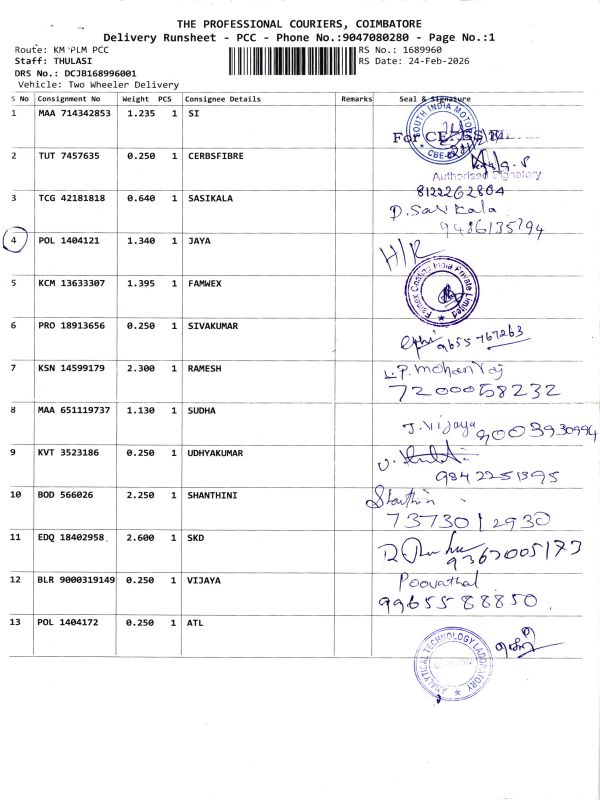 THE PROFESSIONAL COURIERS, COIMBATORE
Delivery Runsheet - PCC - Phone No.:9047080280 - Page No.:1
Route: KM PLM PCC RS No.: 1689960
Staff: THULASI RS Date: 24-Feb-2026
DRS No.: DCJB168996001
Vehicle: Two Wheeler Delivery
S No Consignment No Weight PCS Consignee Details Remarks Seal & Signature
1 MAA 714342853 1.235 1 SI SOUTH INDIA MOTOR
For
2 TUT 7457635 0.250 1 CERBSFIBRE
Authorised Signatory
8122262864
3 TCG 42181818 0.640 1 SASIKALA D. Sasikala
9486135794
4 POL 1404121 1.340 1 JAYA H/R
5 KCM 13633307 1.395 1 FAMWEX Private Limited
6 PRO 18913656 0.250 1 SIVAKUMAR
9655767263
7 KSN 14599179 2.300 1 RAMESH P. mohanraj
7200058232
8 MAA 651119737 1.130 1 SUDHA J. Vijaya 9003930994
9 KVT 3523186 0.250 1 UDHYAKUMAR
9842251395
10 BOD 566026 2.250 1 SHANTHINI Shanthini
7373012930
11 EDQ 18402958 2.600 1 SKD
9367005173
12 BLR 9000319149 0.250 1 VIJAYA Poovathal
9965588850
13 POL 1404172 0.250 1 ATL
ANALYTICAL TECHNOLOGY LABORATORY